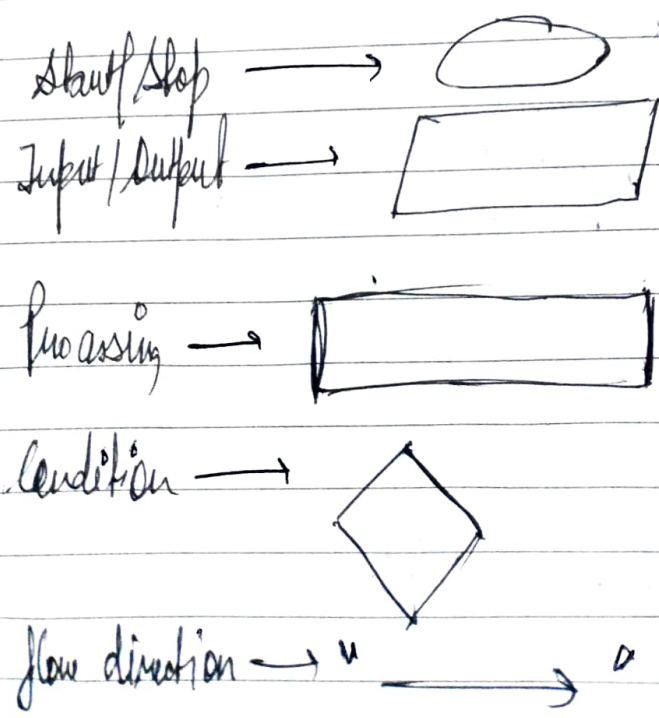 Start/Stop
Input/Output
Processing
Condition
flow direction